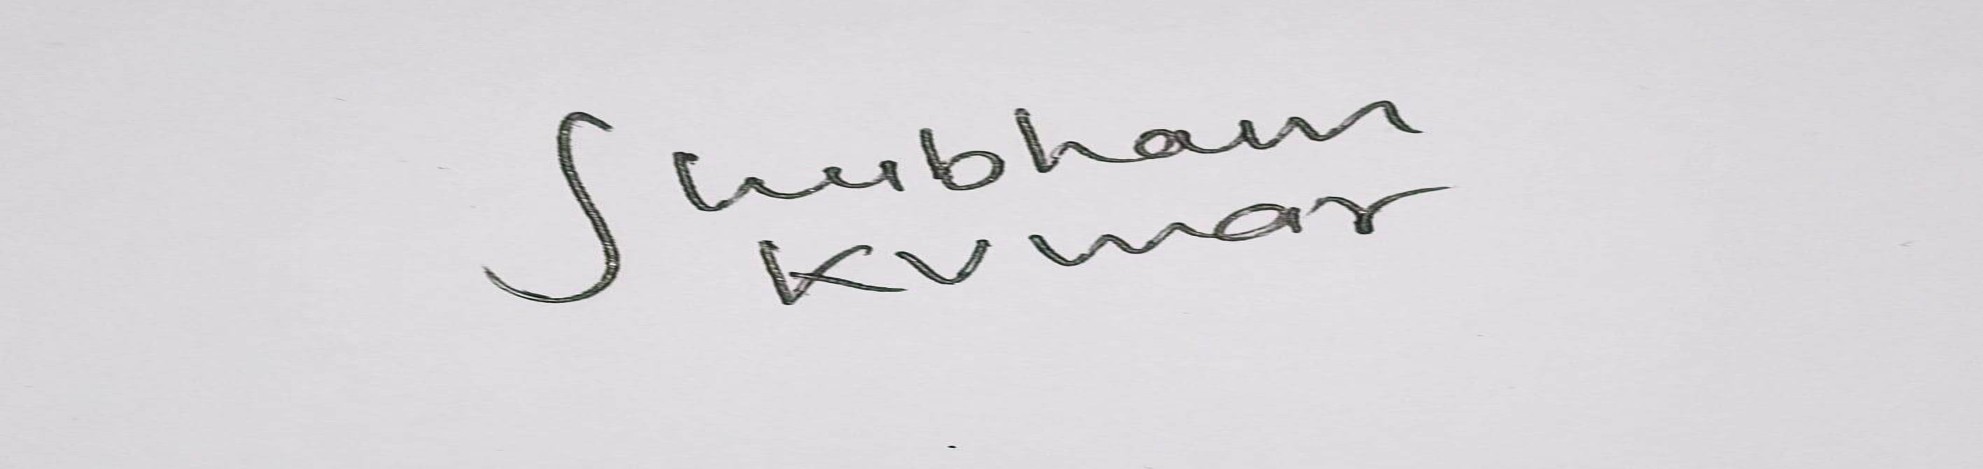 Shubham
Kumar